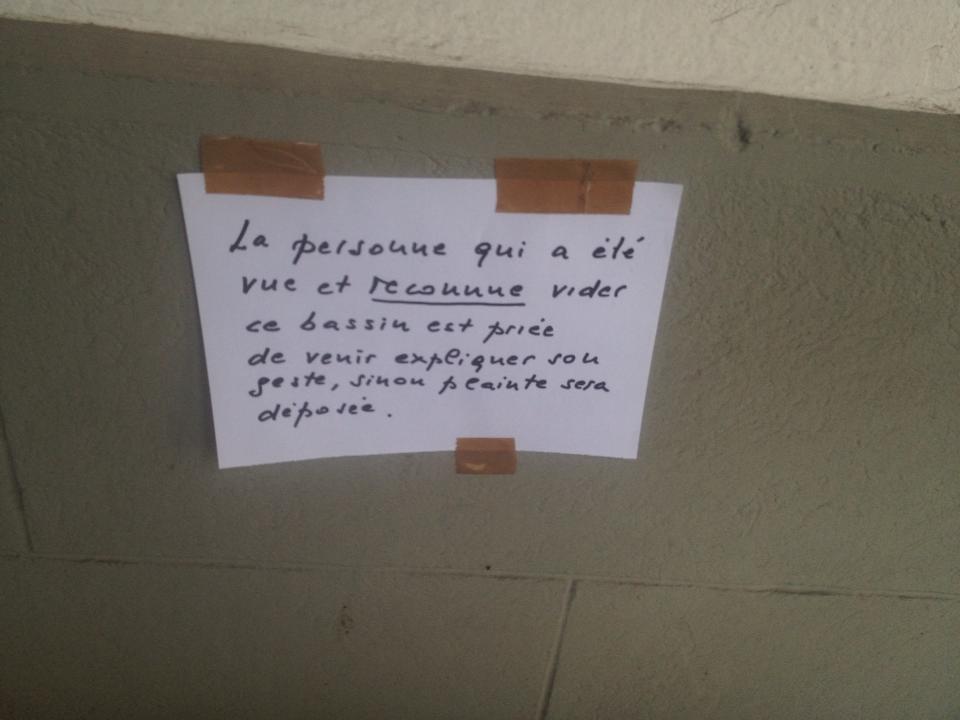 La personne qui a été
vue et reconnue vider
ce bassin est priée
de venir expliquer son
geste, sinon plainte sera
déposée.